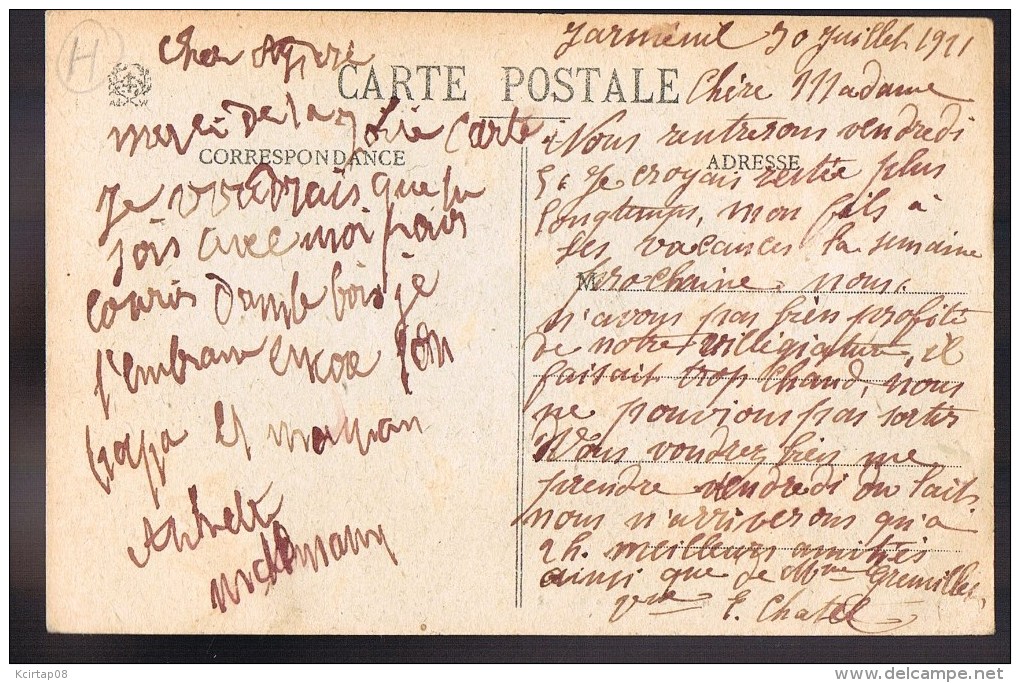 H
CARTE POSTALE
CORRESPONDANCE
ADRESSE
M
Cher
merci de la jolie carte
je vouedrais que tu
sois avec moi pour
couris dans le bois je
t'embrasse encore ton
pappa et maman
Jarmenil 30 Juillet 1911
Chère Madame
Nous rentrerons vendredi
5. Je croyais restée plus
longtemps, mon fils à
ses vacances la semaine
prochaine. nous
n'avons pas bien profité
de notre villégiature, il
faisait trop chaud, nous
ne pouvions pas sortir
Vous voudrez bien me
prendre vendredi du lait.
nous n'arriverons qu'a
2h. meilleurs amitiés
ainsi que de Mme
E. Chatel
Kcirtap08
www.delcampe.net